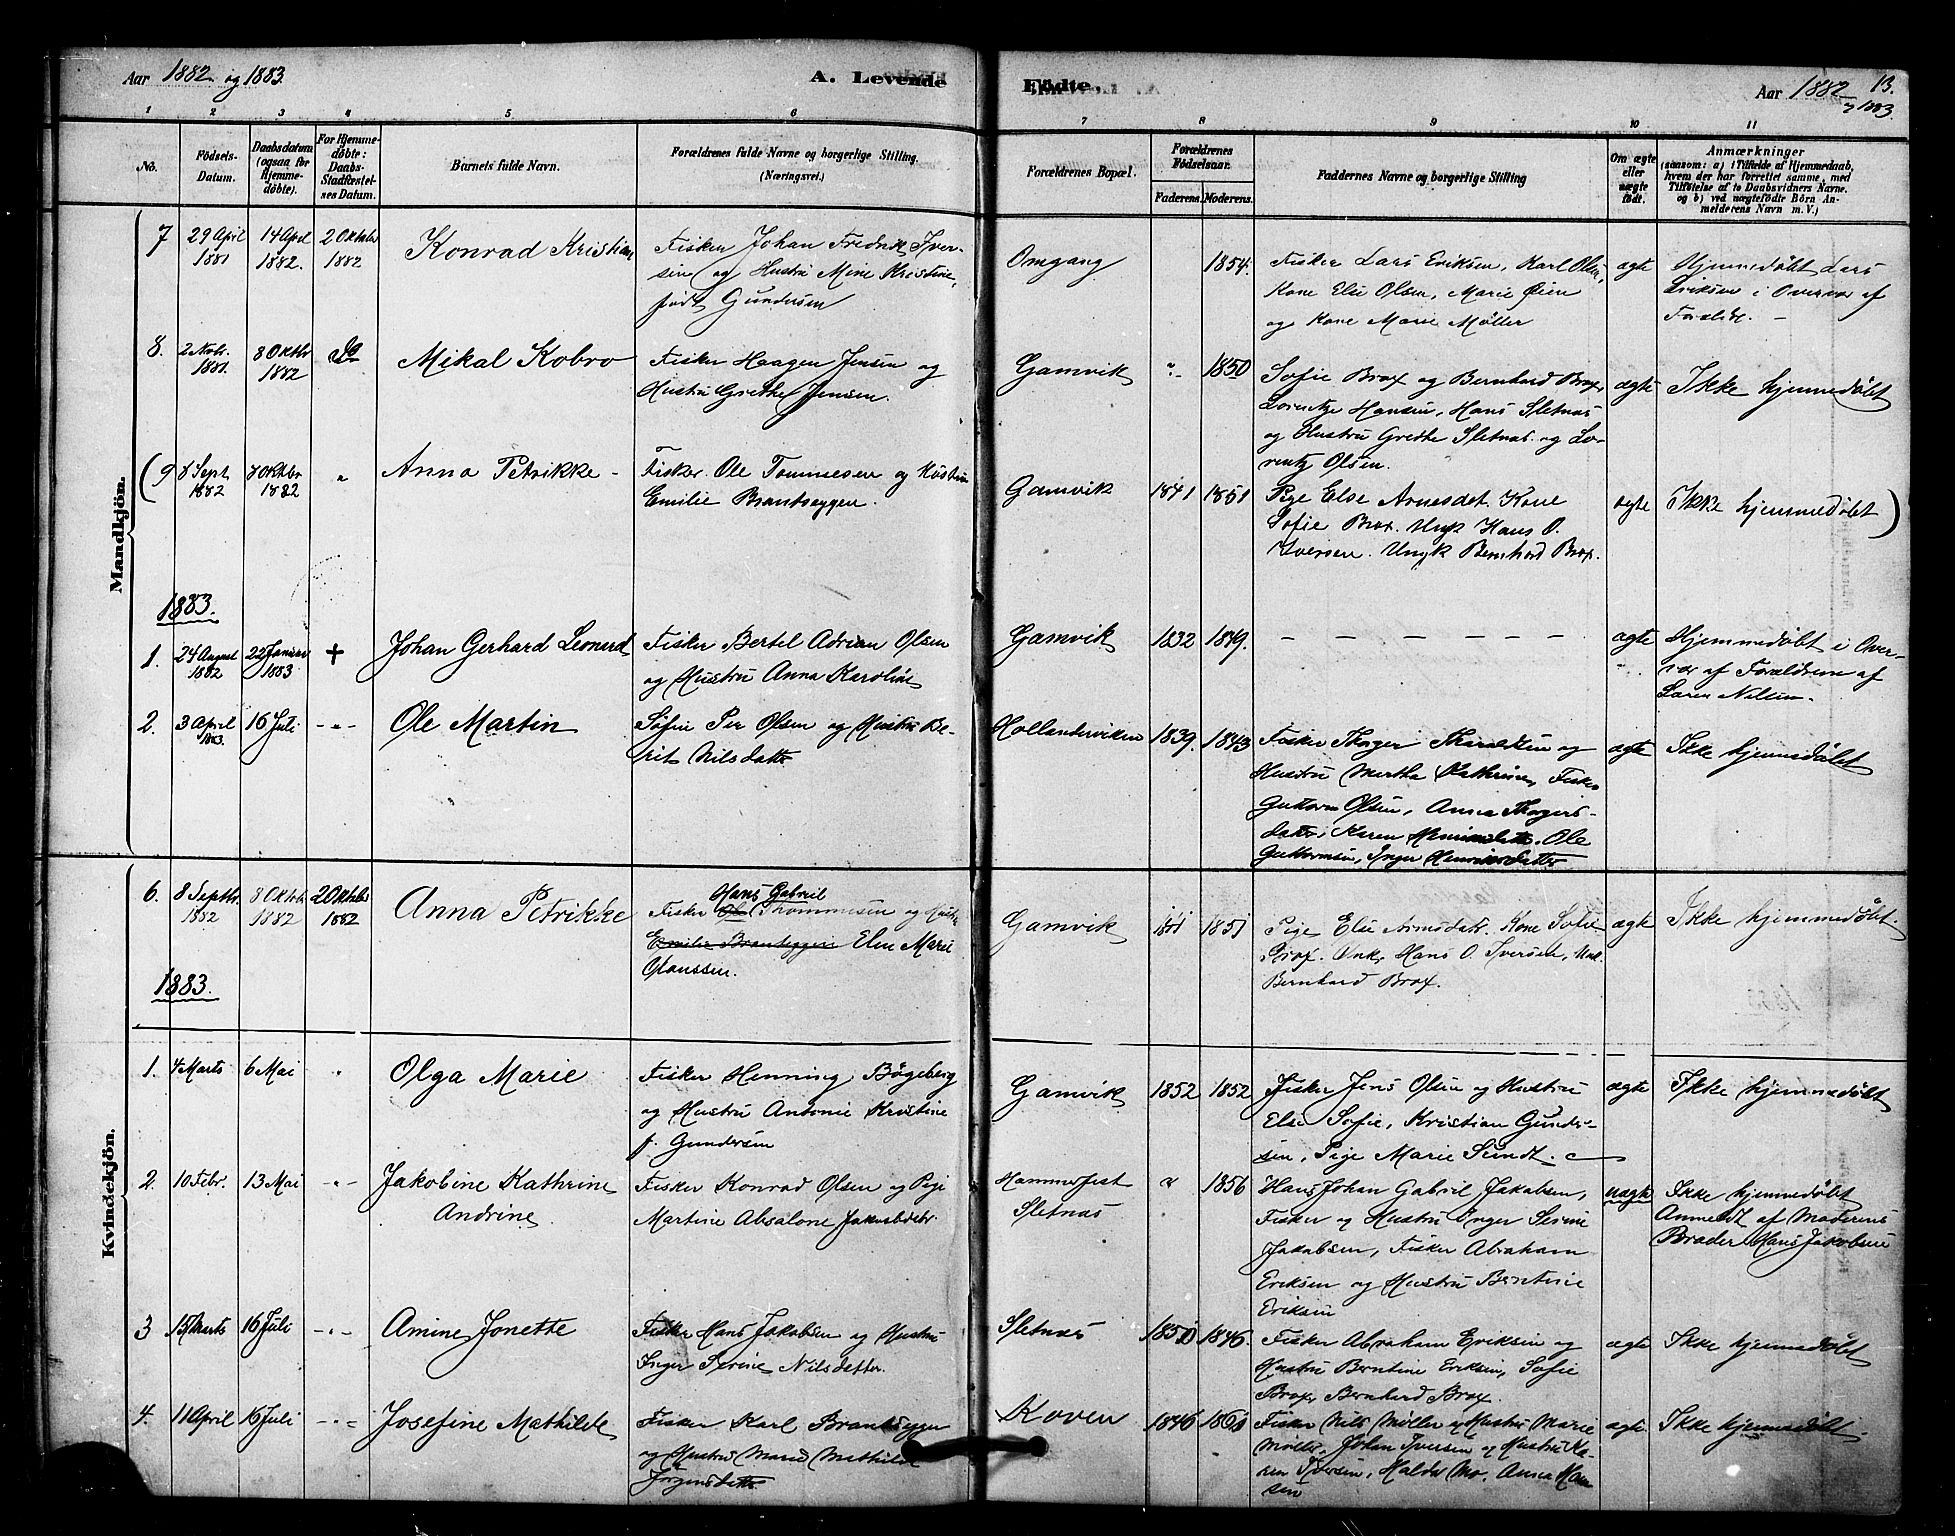 Aar 1882 og 1883.
A. Levende
Fødte,
Aar 1882 13.
og 1883.
1 2 3 4 5 6 7 8 9 10 11
No.
Födsels-
Datum.
Daabsdatum
(ogsaa for
Hjemme-
döbte).
For Hjemme-
döbte:
Daabs-
Stadfæstel-
ses Datum.
Barnets fulde Navn.
Forældrenes fulde Navne og borgerlige Stilling.
(Næringsvei.)
Forældrenes Bopæl.
Forældrenes
Födselsaar.
Faderens. Moderens.
Faddernes Navne og borgerlige Stilling
Om ægte
eller
uægte
födt.
Anmærkninger
(saasom: a) i Tilfælde af Hjemmedaab,
hvem der har forrettet samme, med
Tilföielse af to Daabsvidners Navne.
og b) ved uægtefödte Börn An-
melderens Navn m. V.)
Mandkjön.
7 29 April 1881 14 April 1882. 2 Oktober 1882 Konrad Kristian
Fisker Johan Fredrik Iver-
sen og Hustru Mine Kristine,
født Gundersen
Omgang 1854.
Fisker Lars Eriksen, Karl Olsen,
Kone Else Olsen, Marie Øien
og Kone Marie Møller
ægte
Hjemmedøbt Lars
Eriksen i Overvær af
Forældre. –
8. 2 Novbr. 1881. 8 Oktbr 1882 Mikal Kobro
Fisker Haagen Jensen og
Hustru Grethe Jensen.
Gamvik 1850
Sofie Brox og Bernhard Brox,
Lorentze Hansen, Hans Sletnæs
og Hustru Grethe Sletnæs og Lo-
rentz Olsen.
ægte Ikke hjemmedøbt
(9 8 Sept 1882 8 Oktbr 1882 " Anna Petrikke –
Fisker Ole Tommesen og Hustru
Emilie Brantseggen.
Gamvik 1841 1851
Pige Else Arnesdat. Kone
Sofie Brox. Ungk Hans O.
Iversen. Ungk Bernhard Brox.
ægte Ikke hjemmedøbt )
1883.
1. 24 August 1882 22 Januar 1883 + Johan Gerhard Leonard
Fisker Bertel Adrian Olsen
og Hustru Anna Karoline
Gamvik 1832 1849. – – – – – – –
ægte
Hjemmedøbt i Over-
vær af Forældrene af
Søren Nilsen.
2. 3 April 1883. 16 Juli – " – Ole Martin
Søfin Per Olsen og Hustru Be-
rit Nilsdatter
Hollanderviken 1839. 1843
Fisker Thoger Tharaldsen og
Hustru Mertha Kathrine, Fisker
Guttorm Olsen, Anna Thogers-
datter, Karen Ole
Guttormsen, Inger Henriksdatter
ægte Ikke hjemmedøbt
Kvindekjön.
6. 8 Septbr. 1882 8 Oktober 1882 2 Oktober 1882 Anna Petrikke
Hans Gabriel
Fisker Ole Thommesen og Hustru
Emilie Brantseggen Else Marie
Clanssen.
Gamvik 1851
Pige Else Arnesdatr. Kone Sofie
Brox. Unk. Hans O. Iversen, Unk.
Bernhard Brox.
ægte Ikke hjemmedøbt.
1883.
1. 4 Marts 6 Mai " Olga Marie
Fisker Henning Bøgeberg
og Hustru Antonie Kristine
f. Gundersen
Gamvik 1852 1852
Fisker Jens Olsen og Hustru
Else Sofie, Kristian Gunder-
sen, Pige Marie Sundt.
ægte Ikke hjemmedøbt
2. 10 Febr. 13 Mai – " – Jakobine Kathrine
Andrine.
Fisker Konrad Olsen og Pige
Martine Absalone Jakobsdtr.
Hammerfest
Sletnæs
" 1856
Hans Johan Gabriel Jakobsen,
Fisker og Hustru Inger Serine
Jakobsen, Fisker Abraham
Eriksen og Hustru Berntine
Eriksen
uægte
Ikke hjemmedøbt
Anmeldt af Moderens
Broder Hans Jakobsen
3 15 Marts 16 Juli – " – Amine Jonette
Fisker Hans Jakobsen og Hustru
Inger Serine Nilsdatter.
Sletnæs 1850 1846.
Fisker Abraham Eriksen og
Hustru Berntine Eriksen, Sofie
Brox, Bernhard Brox.
ægte Ikke hjemmedøbt
4. 11 April 16 Juli – " – Josefine Mathilde
Fisker Karl Brantsegger
og Hustru Mathilde
Jørgensdatter
Koven 1846 1860
Fisker Nils Møller og Hustru Marie
Møller, Johan Iversen og Hustru Ka-
ren Iversen, Haldor Mo, Anna Han-
sen
ægte. Ikke hjemmedøbt.